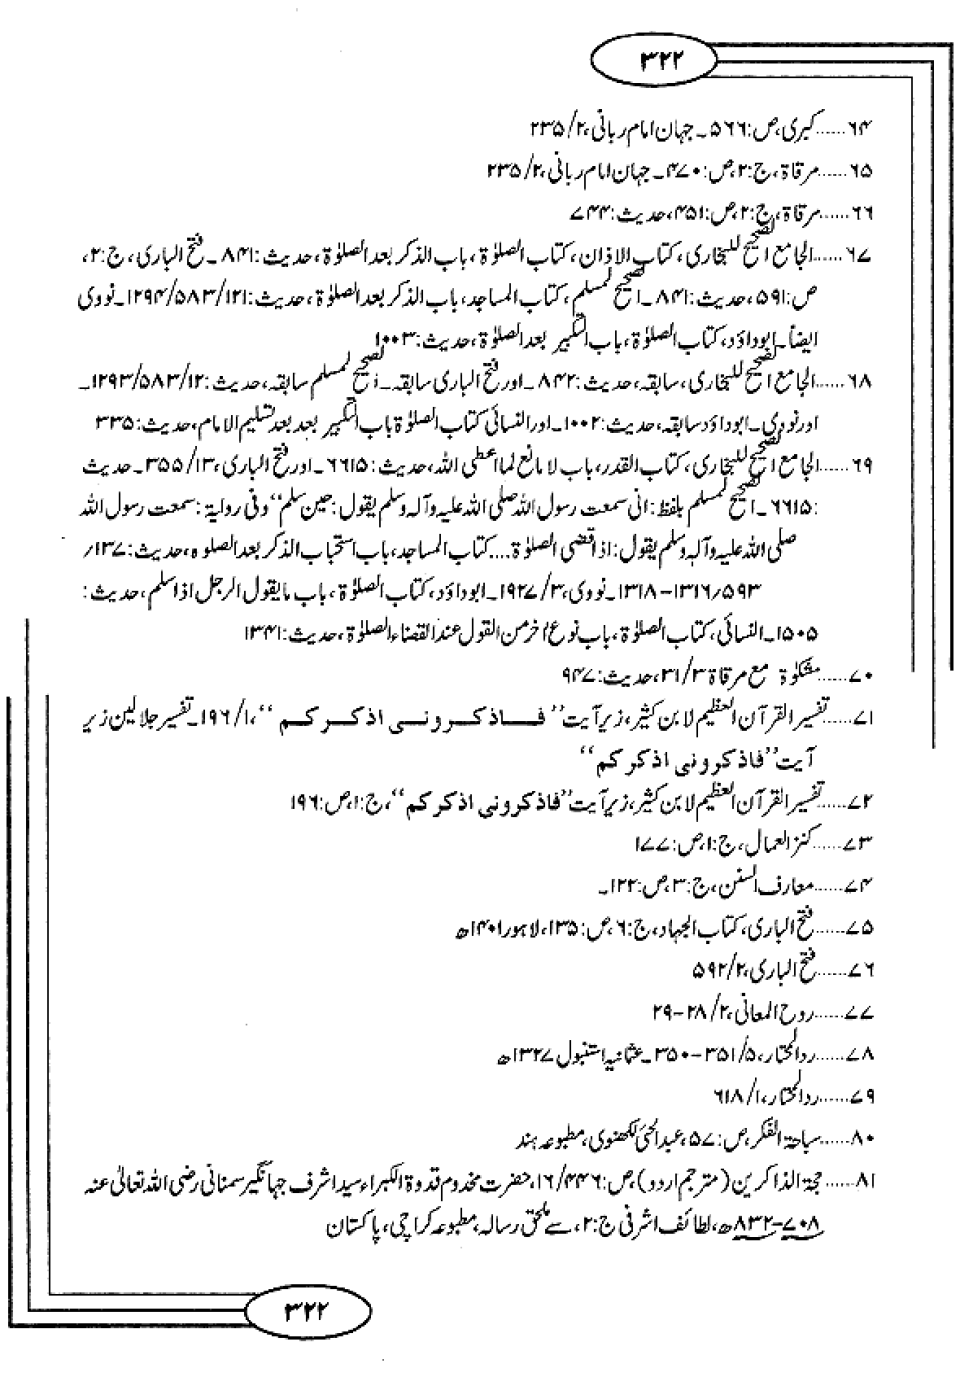 ۳۲۲
۶۴......کبریٰ، ص:۵۶۶۔ جہان امام ربانی، ۲/۲۳۵
۶۵......مرقاۃ، ج:۲، ص:۴۷۰۔ جہان امام ربانی، ۲/۲۳۵
۶۶......مرقاۃ، ج:۲، ص:۴۵۱، حدیث:۷۴۴
۶۷......الجامع الصحیح للبخاری، کتاب الاذان، کتاب الصلوٰۃ، باب الذکر بعد الصلوٰۃ، حدیث:۸۴۱۔ فتح الباری، ج:۲،
ص:۵۹۱، حدیث:۸۴۱۔ الصحیح لمسلم، کتاب المساجد، باب الذکر بعد الصلوٰۃ، حدیث:۱۲۱/۵۸۳/۱۲۹۴۔ نووی
ایضاً۔ ابوداؤد، کتاب الصلوٰۃ، باب التکبیر بعد الصلوٰۃ، حدیث:۱۰۰۳
۶۸......الجامع الصحیح للبخاری، سابقہ، حدیث:۸۴۲۔ اور فتح الباری سابقہ۔ الصحیح لمسلم سابقہ، حدیث:۱۲/۵۸۳/۱۲۹۳۔
اور نووی۔ ابوداؤد سابقہ، حدیث:۱۰۰۲۔ اور النسائی کتاب الصلوٰۃ باب التکبیر بعد بعد تسلیم الامام، حدیث:۳۳۵
۶۹......الجامع الصحیح للبخاری، کتاب القدر، باب لا مانع لما اعطی اللہ، حدیث:۶۶۱۵۔ اور فتح الباری، ۱۳/۳۵۵۔ حدیث
:۶۶۱۵۔ الصحیح لمسلم بلفظ: انی سمعت رسول اللہ صلی اللہ علیہ وآلہ وسلم یقول: حین سلم“ وفی روایۃ: سمعت رسول اللہ
صلی اللہ علیہ وآلہ وسلم یقول: اذا قضی الصلوٰۃ.... کتاب المساجد، باب استحباب الذکر بعد الصلوہ، حدیث:۱۳۷/
۵۹۳/۱۳۱۶-۱۳۱۸۔ نووی، ۳/۱۹۲۷۔ ابوداؤد، کتاب الصلوٰۃ، باب ما یقول الرجل اذا سلم، حدیث:
۱۵۰۵۔ النسائی، کتاب الصلوٰۃ، باب نوع اخر من القول عند القضاء الصلوٰۃ، حدیث:۱۳۴۱
۷۰......مشکوٰۃ مع مرقاۃ ۳/۳۱، حدیث:۹۴۷
۷۱......تفسیر القرآن العظیم لابن کثیر، زیر آیت” فاذکرونی اذکرکم “، ۱/۱۹۶۔ تفسیر جلالین زیر
آیت”فاذکرونی اذکرکم“
۷۲......تفسیر القرآن العظیم لابن کثیر، زیر آیت”فاذکرونی اذکرکم“، ج:۱، ص:۱۹۶
۷۳......کنز العمال، ج:۱، ص:۱۷۷
۷۴......معارف السنن، ج:۳، ص:۱۲۲۔
۷۵......فتح الباری، کتاب الجہاد، ج:۶، ص:۱۳۵، لاہور ۱۴۰۱ھ
۷۶......فتح الباری، ۲/۵۹۲
۷۷......روح المعانی، ۲/۲۸-۲۹
۷۸......رد المحتار، ۵/۳۵۱-۳۵۰۔ عثمانیہ استنبول ۱۳۲۷ھ
۷۹......رد المحتار، ۱/۶۱۸
۸۰......سباحۃ الفکر، ص:۵۷، عبد الحئی لکھنوی، مطبوعہ ہند
۸۱......حجۃ الذاکرین (مترجم اردو)، ص:۱۶/۴۴۶، حضرت مخدوم قدوۃ الکبراء سید اشرف جہانگیر سمنانی رضی اللہ تعالیٰ عنہ
۷۰۸-۸۳۲ھ، لطائف اشرفی ج:۲، سے ملحق رسالہ، مطبوعہ کراچی، پاکستان
۳۲۲